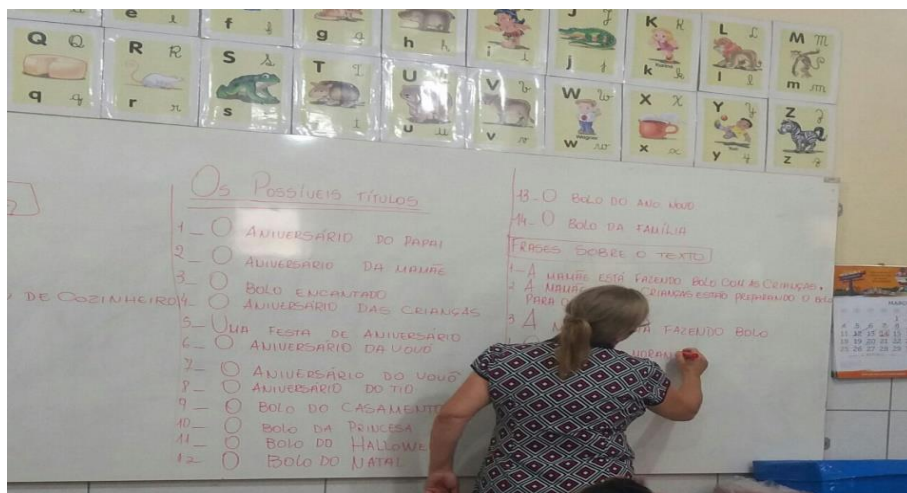 e e
f f
g g
h h
i i
J J
j j
K K
k k
L L
l l
M M
m m
Q Q
q q
R R
r r
S S
s s
T T
t
U U
u u
V V
v v
W W
w w
X X
x x
Y Y
y y
Z Z
z z
Os Possíveis títulos
1 _ O ANIVERSÁRIO DO PAPAI
2 _ O ANIVERSÁRIO DA MAMÃE
3 _ O BOLO ENCANTADO
DE COZINHEIRO
4 _ O ANIVERSÁRIO DAS CRIANÇAS
5 _ UMA FESTA DE ANIVERSÁRIO
6 _ O ANIVERSÁRIO DA VOVÓ
7 _ O ANIVERSÁRIO DO VOVÔ
8 _ O ANIVERSÁRIO DO TIO
9 _ O BOLO DO CASAMENTO
10 _ O BOLO DA PRINCESA
11 _ O BOLO DO HALLOWE
12 _ O BOLO DO NATAL
13 - O BOLO DO ANO NOVO
14 - O BOLO DA FAMÍLIA
FRASES SOBRE O TEXTO
1 - A MAMÃE ESTÁ FAZENDO BOLO COM AS CRIANÇAS.
2 A MAMÃE CRIANÇAS ESTÃO PREPARANDO O BOLO
PARA O
3 A FAZENDO BOLO
MORAN
MARÇO